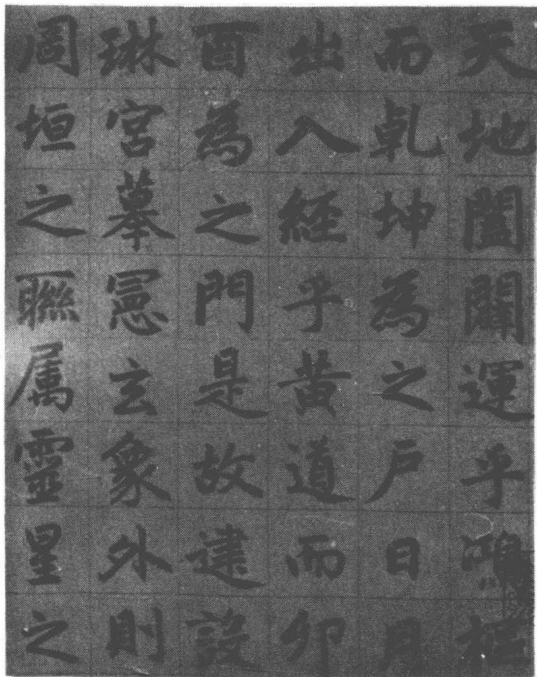 天地闔闢運乎鴻樞
而乹坤為之户日月
出入経乎黄道而夘
酉為之門是故建設
琳宮摹憲玄象外則
周垣之聮属靈星之